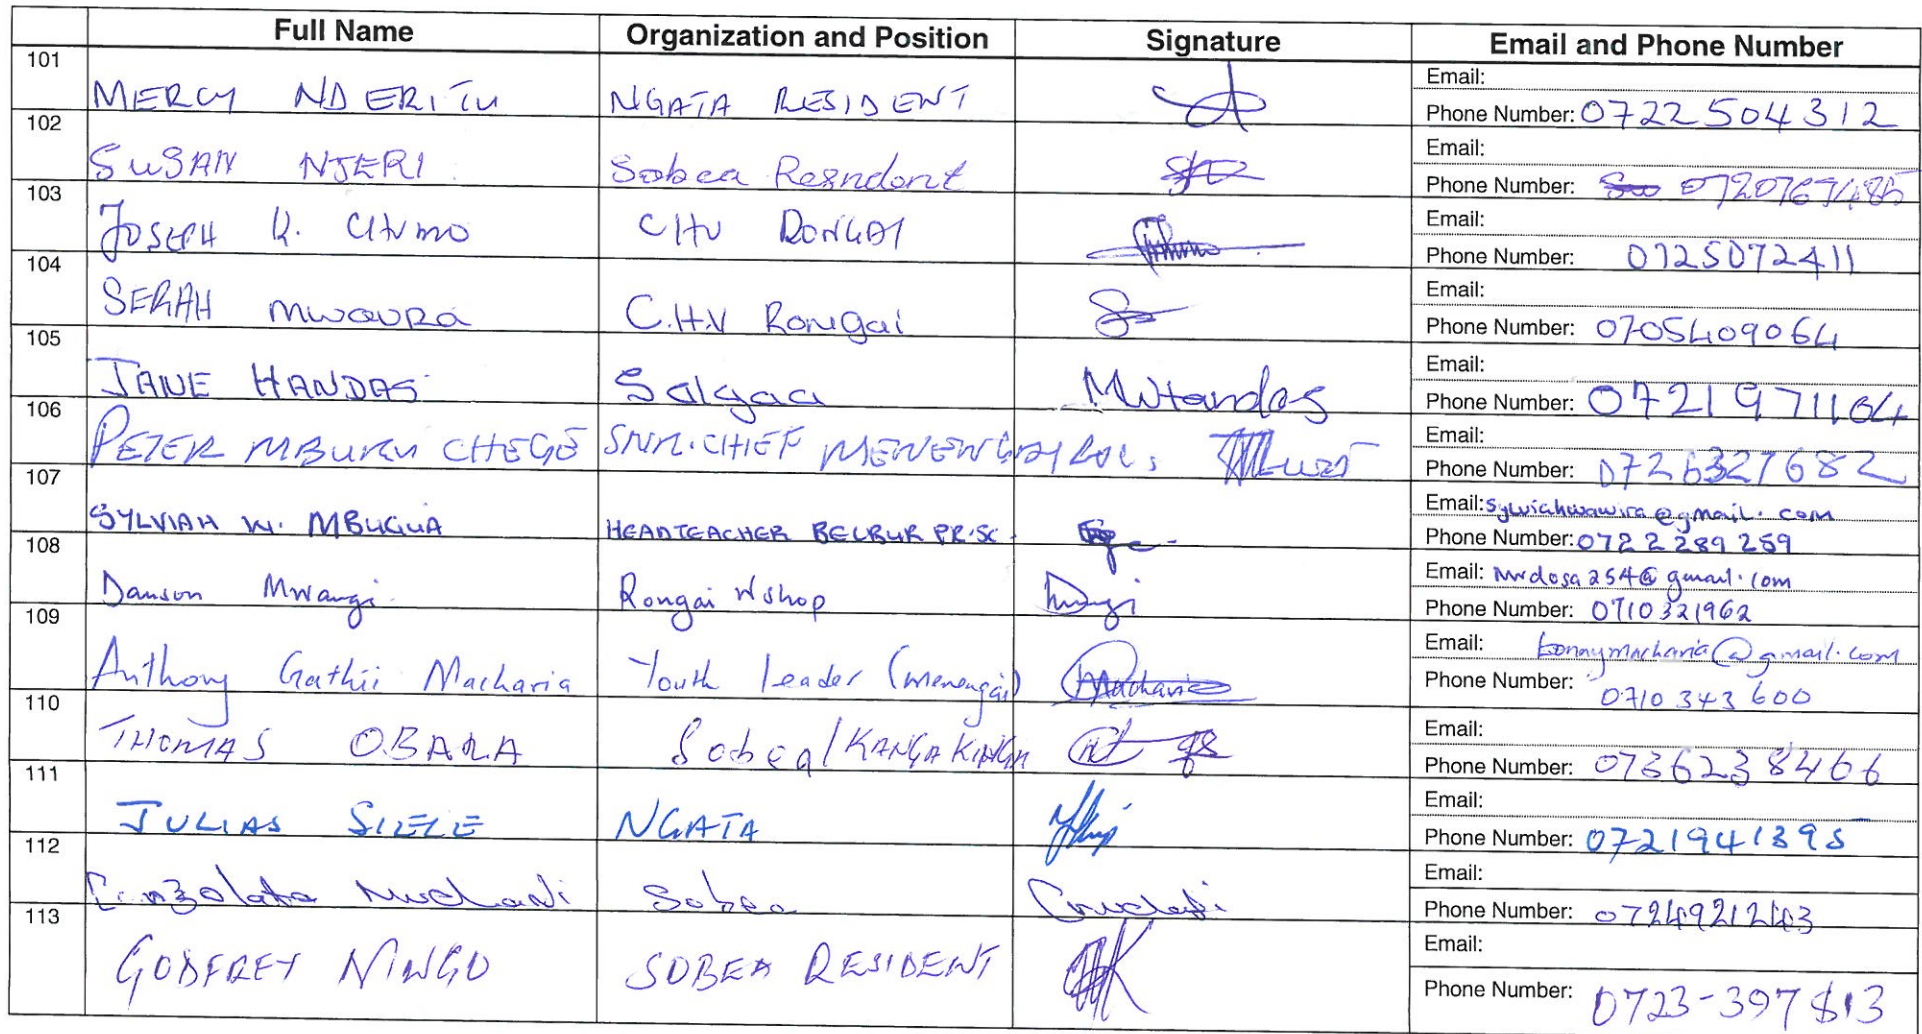 Full Name Organization and Position Signature Email and Phone Number
101 MERCY NDERITU NGATA RESIDENT Email:
Phone Number: 0722504312
102 SUSAN NJERI Sobea Resndont Email:
Phone Number:
103 JOSEPH K. CHUMO CHV RONGAI Email:
Phone Number: 0725072411
104 SERAH MWAURA C.H.V Rongai Email:
Phone Number: 0705409064
105 JANE HANDAS Salgaa MWHandas Email:
Phone Number: 0721971164
106 PETER MBURU CHEGE SNR. CHIEF MENENGAI LOC. Email:
Phone Number: 0726327682
107 SYLVIAH W. MBUGUA HEADTEACHER BELBUR PR. SC. Email: sylviahwawira@gmail.com
Phone Number: 0722289259
108 Danson Mwangi Rongai Wshop Email: Mrdosa254@gmail.com
Phone Number: 0710321962
109 Anthony Gathii Macharia Youth leader (menengai) Macharia Email: tonnymacharia@gmail.com
Phone Number: 0710 343 600
110 THOMAS OBARA Sobea/KANGA KINGA Email:
Phone Number: 0736238466
111 JULIAS SIELE NGATA Email:
Phone Number: 0721941395
112 Conzolata Sobea Email:
Phone Number: 0724921243
113 GODFREY NINGO SOBEA RESIDENT Email:
Phone Number: 0723-397813